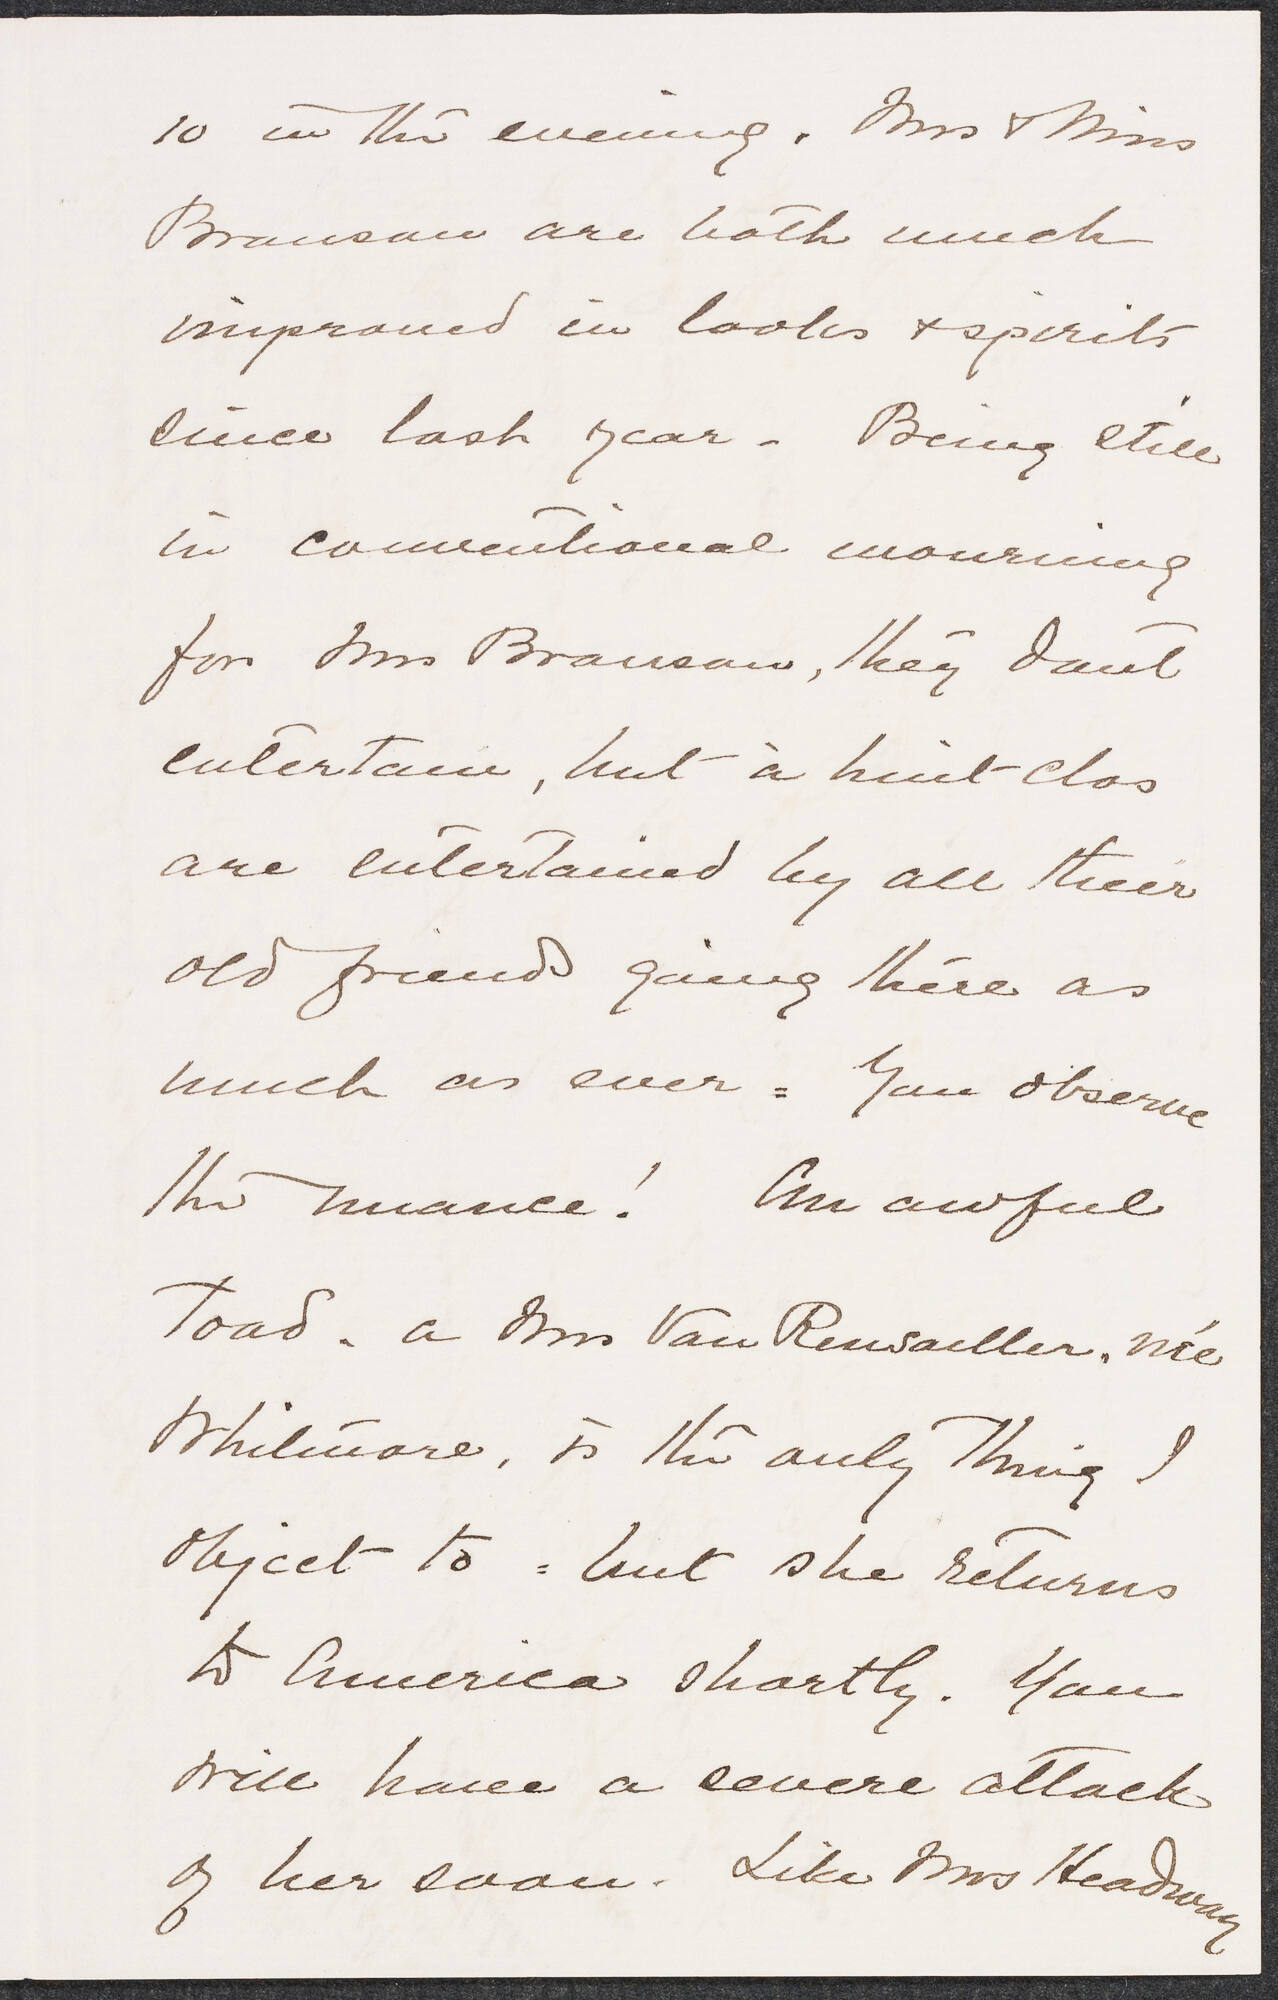 10 in the evening. Mrs & Miss
Bronson are both much
improved in looks & spirits
since last year - Being still
in conventional mourning
for Mrs Bronson, they don't
entertain, but à huit clos
are entertained by all their
old friends going there as
much as ever = You observe
the nuance! An awful
Toad - a Mrs Van Rensaeller, née
Whitmore, is the only thing I
object to = but she returns
to America shortly. You
will have a severe attack
of her soon. Like Mrs Headway